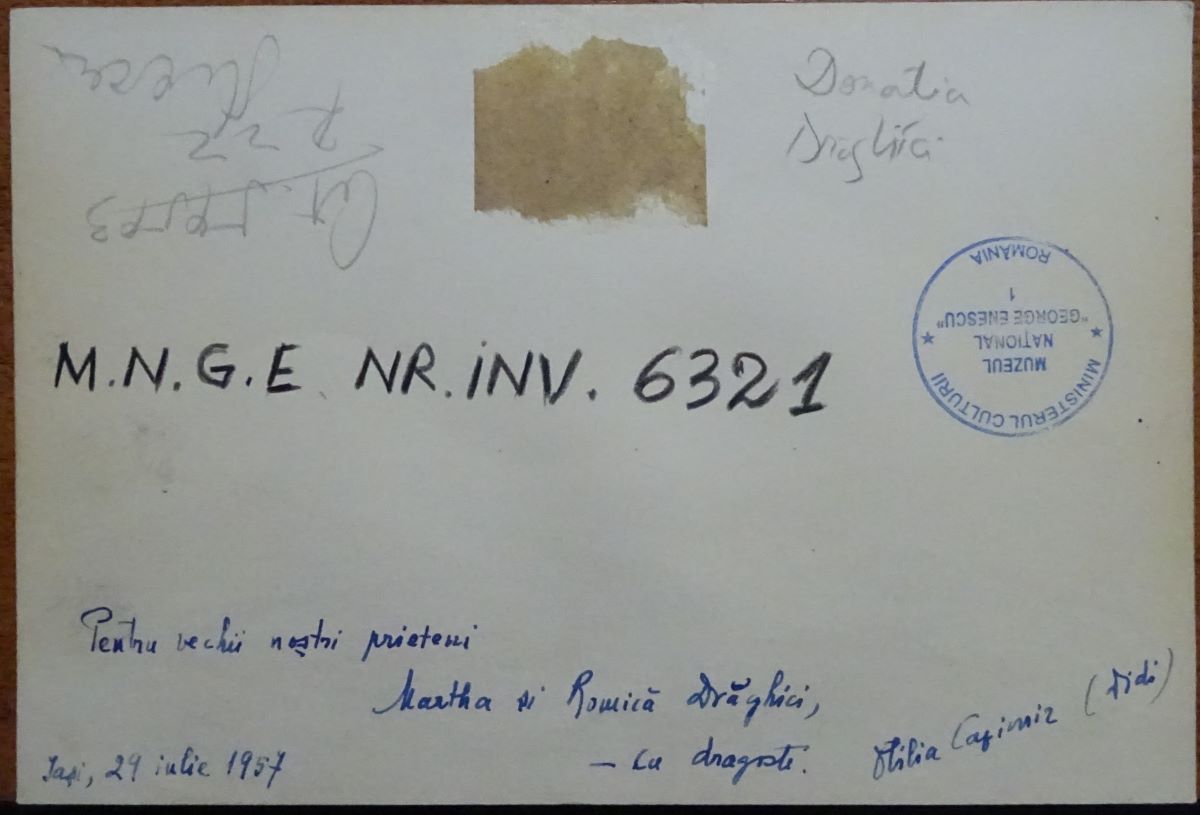 Donatia
Drăghici
MINISTERUL CULTURII
ROMÂNIA
MUZEUL
NAȚIONAL
"GEORGE ENESCU"
1
M.N.G.E. NR. INV. 6321
Pentru vechii noștri prieteni
Martha și Romică Drăghici,
– cu dragoste.
Otilia Cazimir (Didi)
Iași, 29 iulie 1957